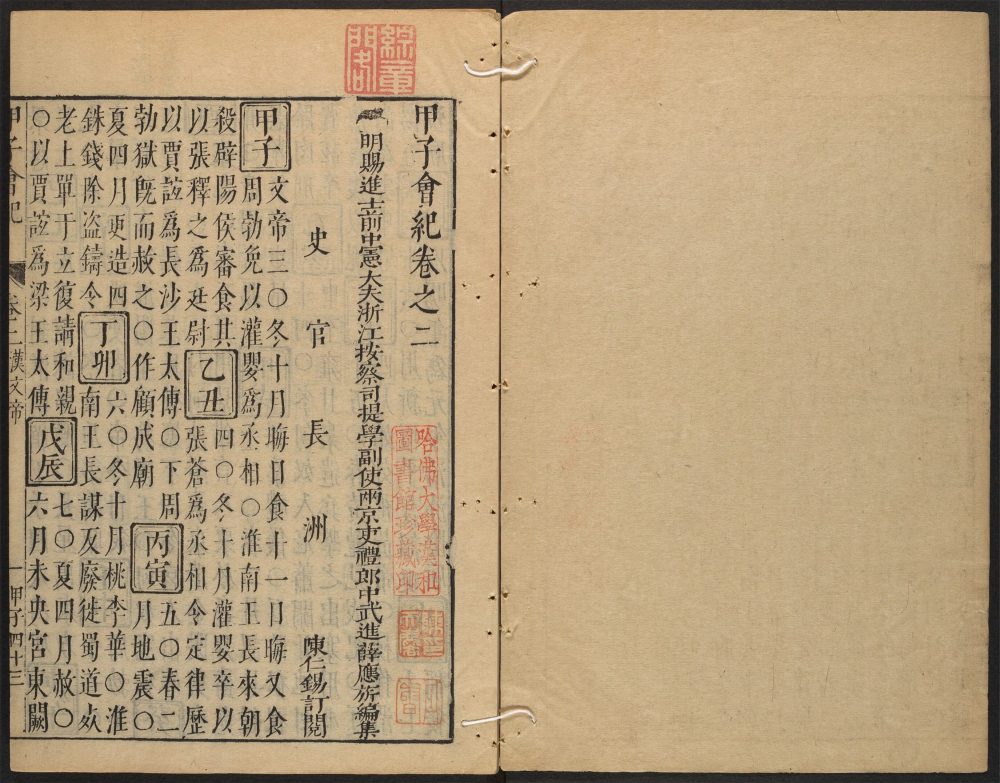 甲子會紀卷之二
明賜進士前中憲大夫浙江按察司提學副使兩京吏禮郎中武進薛應旂編集
史官長洲陳仁錫訂閱
甲子文帝三〇冬十月晦日食十一日晦又食
周勃免以灌嬰爲丞相〇淮南王長來朝
殺辟陽侯審食其乙丑四〇冬十月灌嬰卒以
以張釋之爲廷尉張蒼爲丞相令定律歷
以賈誼爲長沙王太傅〇下周丙寅五〇春二
勃獄旣而赦之〇作顧成廟月地震〇
夏四月更造四丁卯六〇冬十月桃李華〇淮
銖錢除盗鑄令南王長謀反廢徙蜀道死
老上單于立復請和親戊辰七〇夏四月赦〇
〇以賈誼爲梁王太傅六月未央宮東闕
甲子會紀
卷二漢文帝
一甲子四十三
哈佛大學漢和
圖書館珍藏印